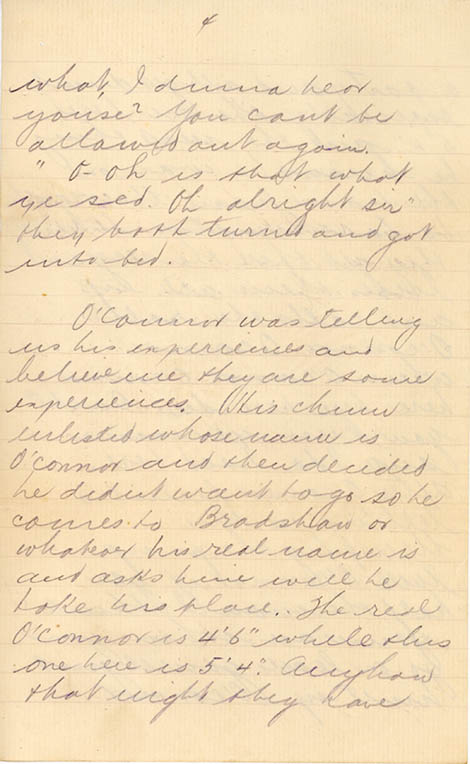 4
what, I dunna hear
youse? You cant be
allowed out again.
" O-oh is that what
ye sed. Oh alright sir"
they both turned and got
into bed.
O'Connor was telling
us his experiences and
believe me they are some
experiences. His chum
enlisted whose name is
O'Connor and then decided
he didnt want to go so he
comes to Bradshaw or
whatever his real name is
and asks him will he
take his place. The real
O'Connor is 4'6" while this
one here is 5'4". Anyhow
that night they have